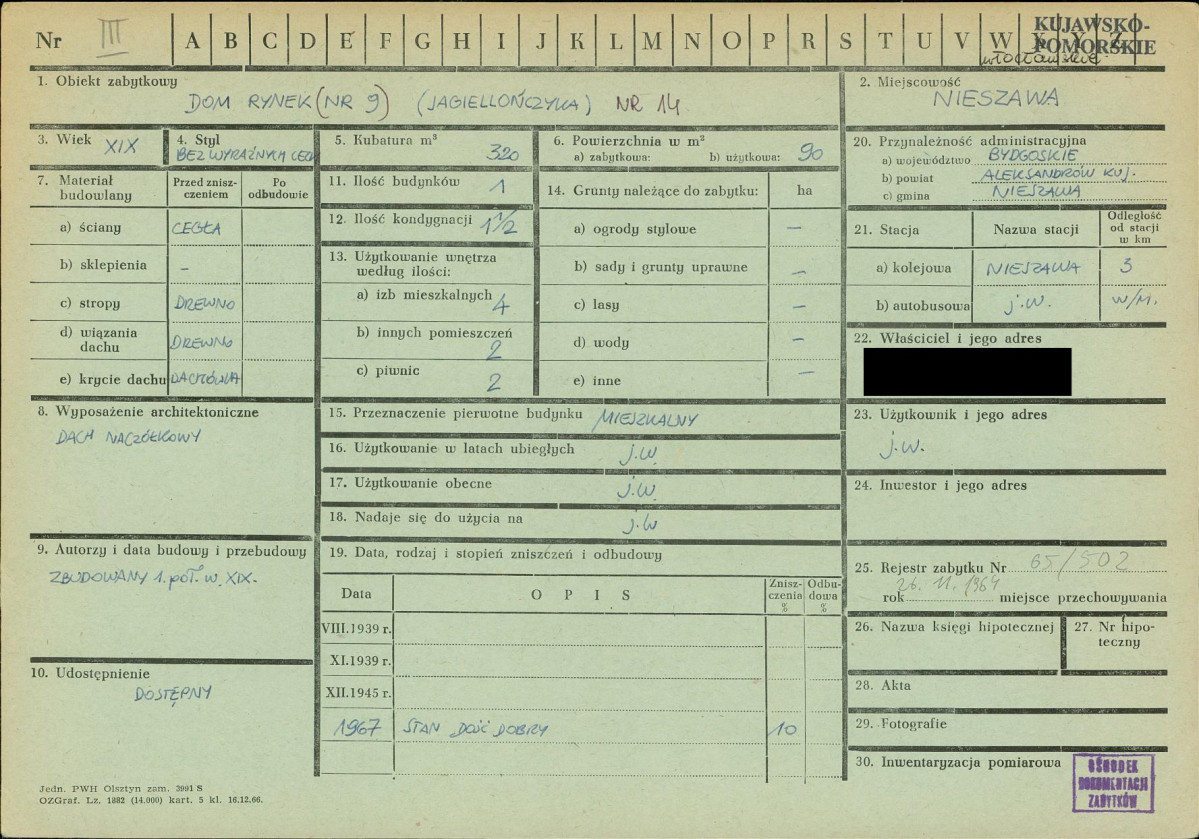 Nr III A B C D E F G H I J K L M N O P R S T U V W X Y Z
KUJAWSKO-
POMORSKIE
włocławskie
1. Obiekt zabytkowy
DOM RYNEK (NR 9) (JAGIELLOŃCZYKA) NR 14
2. Miejscowość
NIESZAWA
3. Wiek XIX
4. Styl
BEZ WYRAŹNYCH CECH
5. Kubatura m³
320
6. Powierzchnia w m²
a) zabytkowa: b) użytkowa: 90
7. Materiał
budowlany
Przed znisz-
czeniem
Po
odbudowie
a) ściany CEGŁA
b) sklepienia –
c) stropy DREWNO
d) wiązania
dachu DREWNO
e) krycie dachu DACHÓWKA
8. Wyposażenie architektoniczne
DACH NACZÓŁKOWY
9. Autorzy i data budowy i przebudowy
ZBUDOWANY 1. poł. w. XIX.
10. Udostępnienie
DOSTĘPNY
11. Ilość budynków 1
12. Ilość kondygnacji 1 1/2
13. Użytkowanie wnętrza
według ilości:
a) izb mieszkalnych 4
b) innych pomieszczeń
2
c) piwnic 2
14. Grunty należące do zabytku: ha
a) ogrody stylowe –
b) sady i grunty uprawne –
c) lasy –
d) wody –
e) inne –
15. Przeznaczenie pierwotne budynku MIESZKALNY
16. Użytkowanie w latach ubiegłych j.w.
17. Użytkowanie obecne j.w.
18. Nadaje się do użycia na j.w
19. Data, rodzaj i stopień zniszczeń i odbudowy
Data O P I S Znisz-
czenia
% Odbu-
dowa
%
VIII.1939 r.
XI.1939 r.
XII.1945 r.
1967 STAN DOŚĆ DOBRY 10
20. Przynależność administracyjna
a) województwo BYDGOSKIE
b) powiat ALEKSANDRÓW KUJ.
c) gmina NIESZAWA
21. Stacja Nazwa stacji Odległość
od stacji
w km
a) kolejowa NIESZAWA 3
b) autobusowa j.w. w/m.
22. Właściciel i jego adres
23. Użytkownik i jego adres
j.w.
24. Inwestor i jego adres
25. Rejestr zabytku Nr 65/502
rok 26. 11. 1964 miejsce przechowywania
26. Nazwa księgi hipotecznej
27. Nr hipo-
teczny
28. Akta
29. Fotografie
30. Inwentaryzacja pomiarowa
OŚRODEK
DOKUMENTACJI
ZABYTKÓW
Jedn. PWH Olsztyn zam. 3991 S
OZGraf. Lz. 1882 (14.000) kart. 5 kl. 16.12.66.